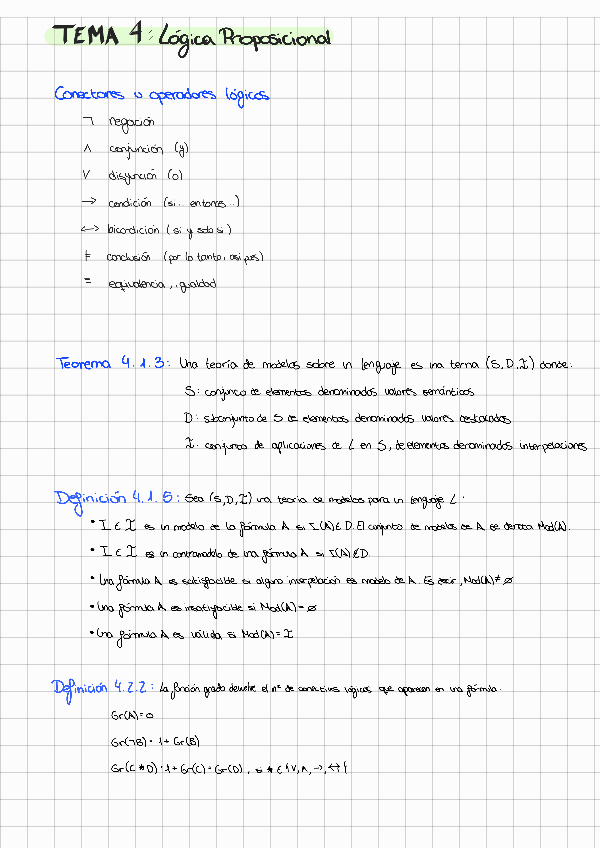 TEMA 4: Lógica Proposicional
Conectores u operadores lógicos
¬ negación
∧ conjunción (y)
∨ disyunción (o)
→ condición (si.. entonces..)
↔ bicondición (si y solo si)
⊨ conclusión (por lo tanto, así pues)
= equivalencia, igualdad
Teorema 4.1.3: Una teoría de modelos sobre un lenguaje es una terna (S,D,I) donde:
S: conjunto de elementos denominados valores semánticos
D: subconjunto de S de elementos denominados valores destacados
I: conjunto de aplicaciones de L en S, de elementos denominados interpretaciones
Definición 4.1.5: Sea (S,D,I) una teoría de modelos para un lenguaje L:
• I ∈ I es un modelo de la fórmula A si I(A) ∈ D. El conjunto de modelos de A se denota Mod(A).
• I ∈ I es un contramodelo de una fórmula A si I(A) ∉ D
• Una fórmula A es satisfacible si alguna interpretación es modelo de A. Es decir, Mod(A) ≠ ∅
• Una fórmula A es insatisfacible si Mod(A) = ∅
• Una fórmula A es válida si Mod(A) = I
Definición 4.2.2: La función grado devuelve el nº de conectivas lógicas que aparecen en una fórmula.
Gr(A) = 0
Gr(¬B) = 1 + Gr(B)
Gr(C * D) = 1 + Gr(C) + Gr(D), si * ∈ {∨, ∧, →, ↔}